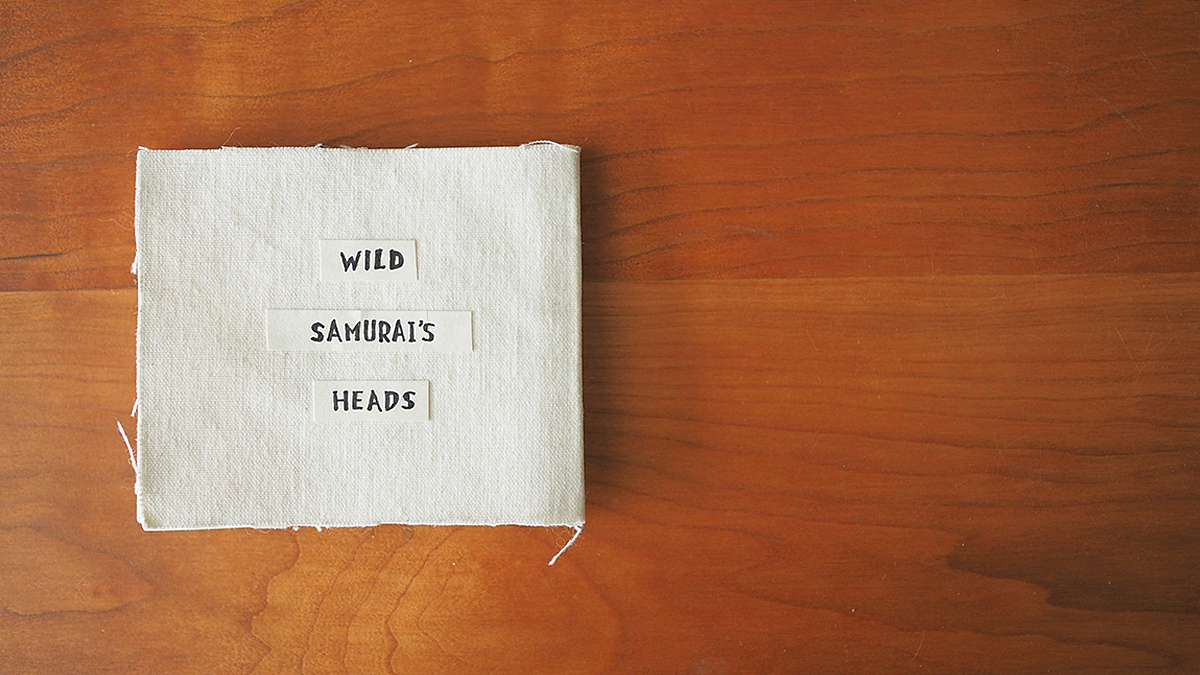 WILD
SAMURAI'S
HEADS